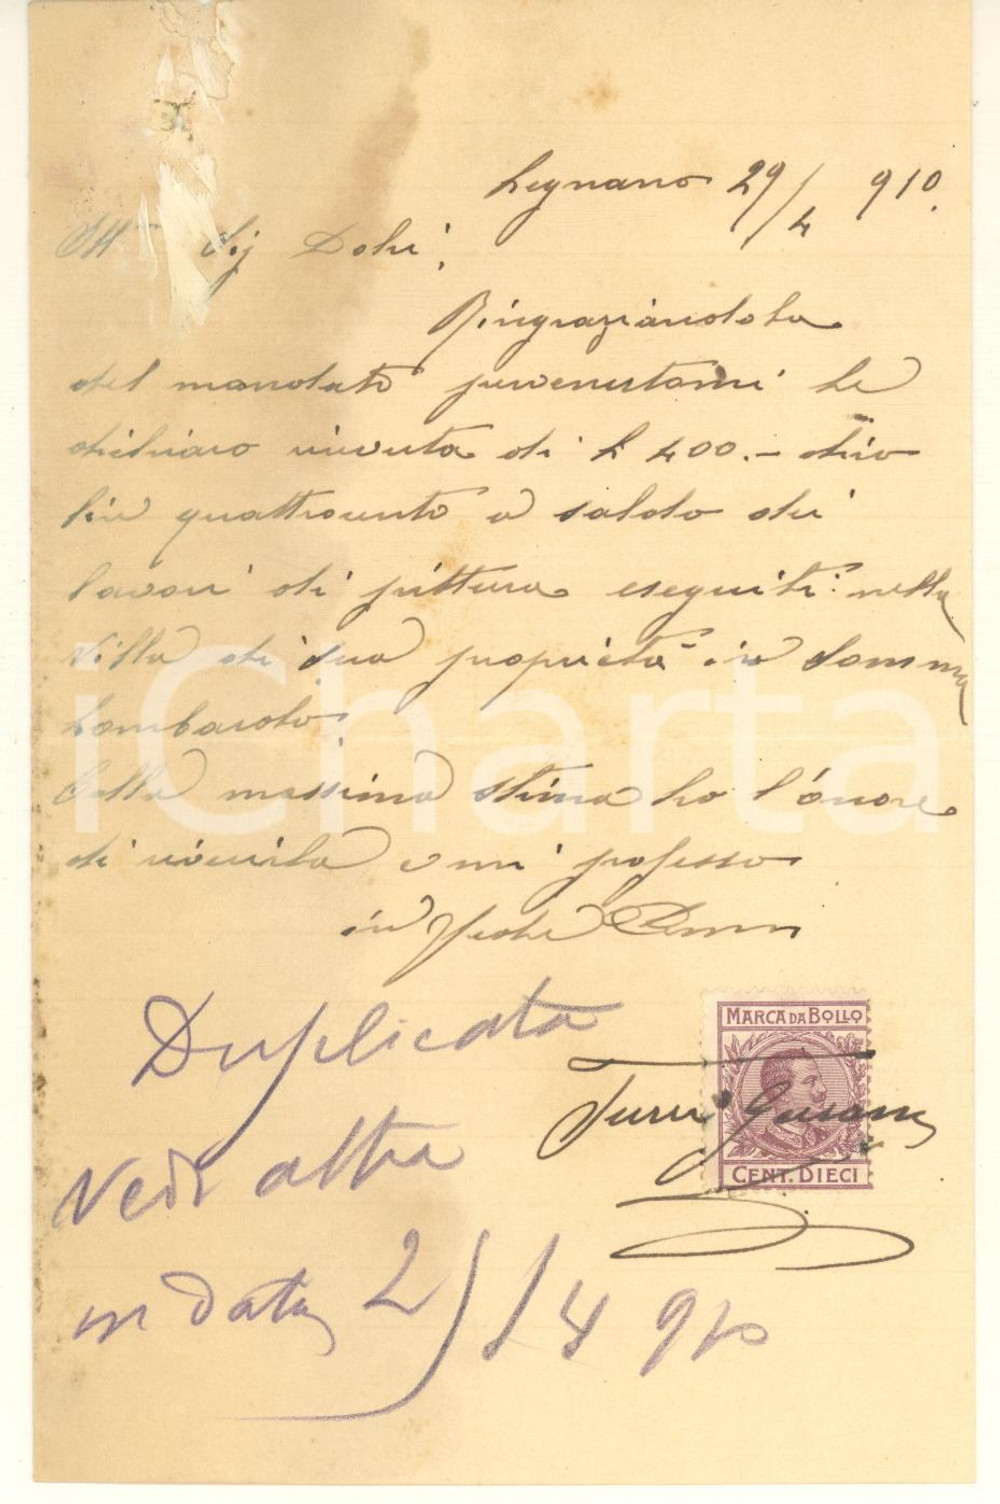 Legnano 29/4 910.
Ill.mo Sig Dohr,
Ringraziandola
del mandato pervenutomi le
dichiaro ricevuta di L 400.- dico
lire quattrocento a saldo dei
lavori di pittura eseguiti nella
Villa di sua proprietà in Somma
Lombardo.
Colla massima stima ho l'onore
di riverirla e mi professo
in fede
Duplicata
Vedi altra
in data 2 /4 910
MARCA DA BOLLO
CENT. DIECI
Turri
iCharta